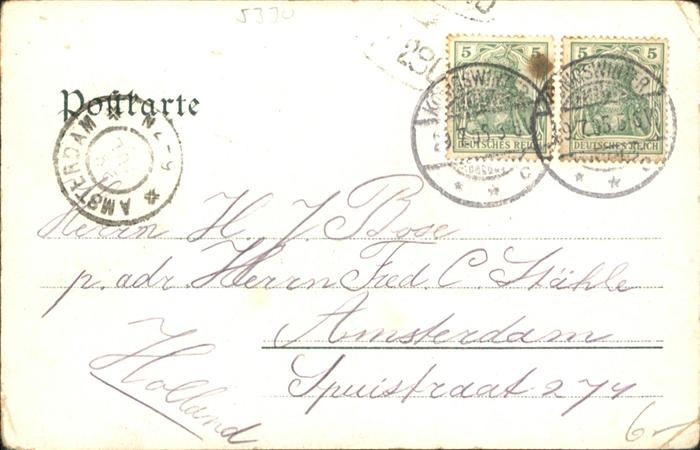 5330
290
5 5 5 5
DEUTSCHES REICH DEUTSCHES REICH
KÖNIGSWINTER
KÖNIGSWINTER
Postkarte
AMSTERDAM
Herrn H. J. Bose
p. adr. Herrn Fred. C. Stähle
Amsterdam
Spuistraat 271
Holland
6-